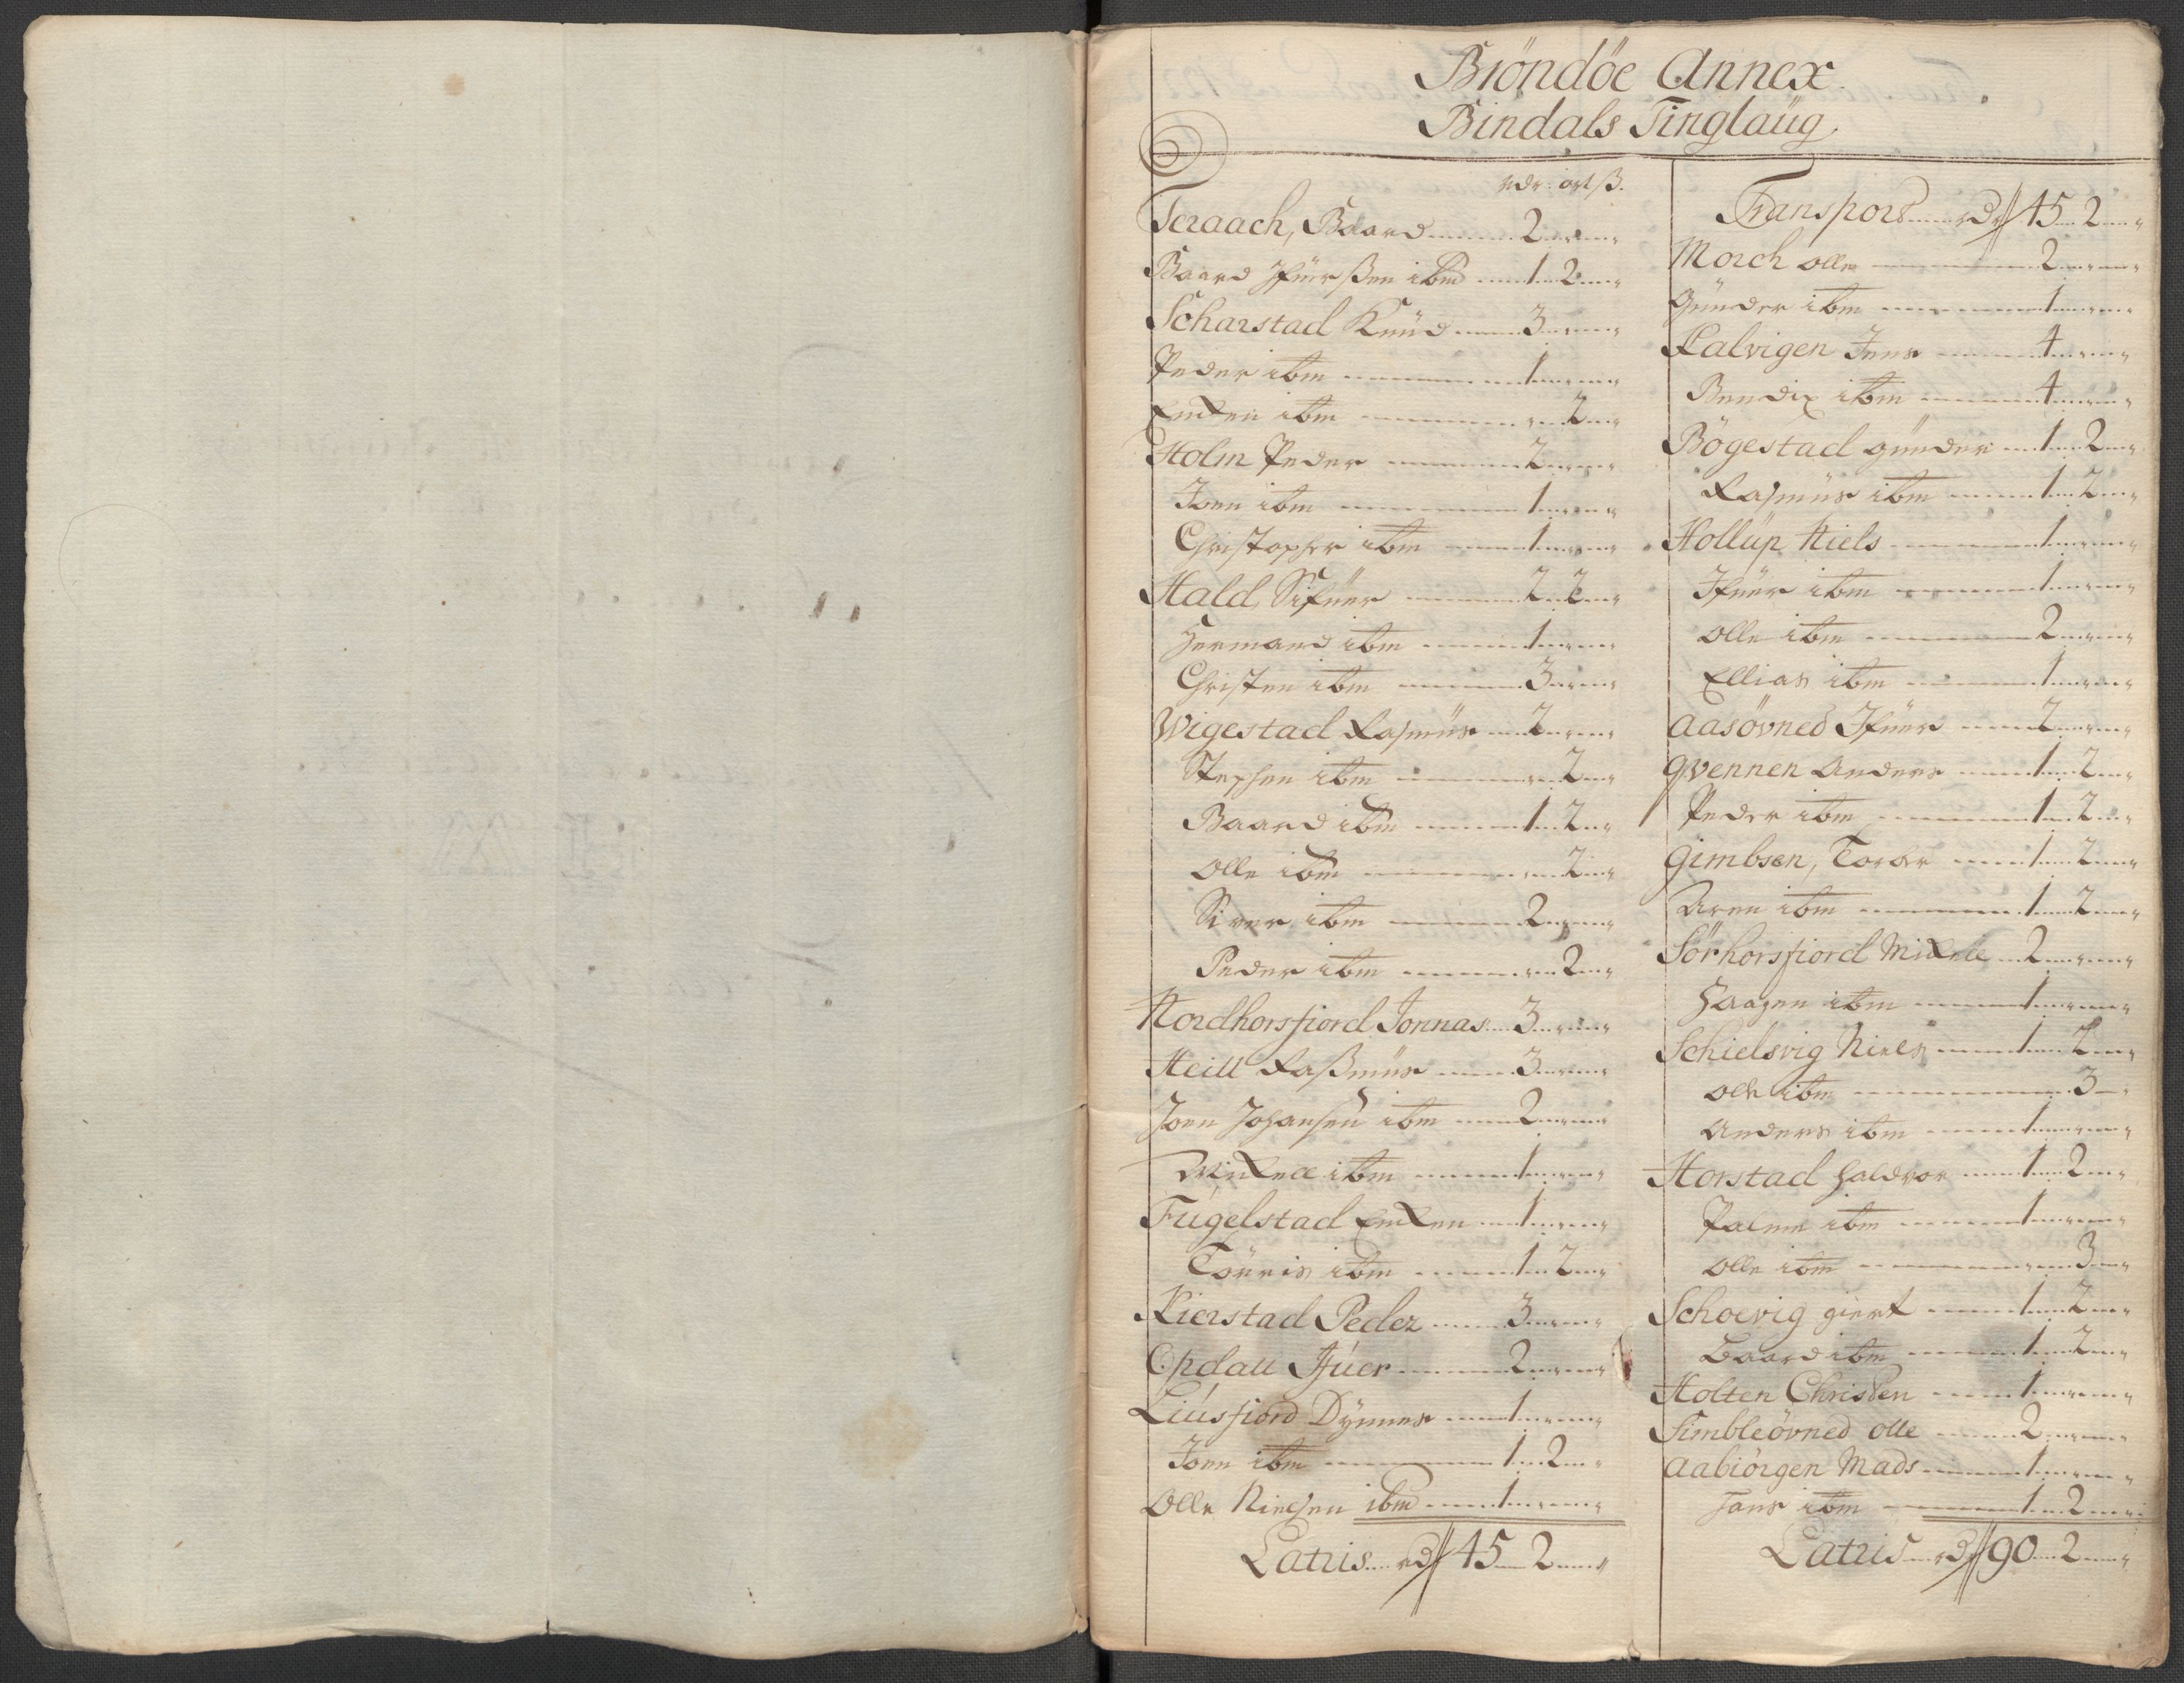 Brøndøe Annex.
Bindals Tinglaüg.
rdr: ort ß.
Teraach, Baard 2 " "
Baard Ifuerßen ibm 1 2 "
Scharstad Knüd 3 " "
Peder ibm 1 " "
Enken ibm " 2 "
Holm Peder 2 " "
Joen ibm 1 " "
Christopher ibm 1 " "
Hald, Sifuer 2 2 "
Hermand ibm 1 " "
Christen ibm 3 " "
Wigestad Rasmüs 2 " "
Stephen ibm " 2 "
Baard ibm 1 2 "
Olle ibm " 2 "
Siver ibm 2 " "
Peder ibm " 2 "
Nordhorsfiord Jonnas 3 " "
Heill Raßmüs 3 " "
Joen Johansen ibm 2 " "
Mickell ibm 1 " "
Fügelstad Enken 1 " "
Tørris ibm 1 2 "
Kierstad Peder 3 " "
Opdall Ifüer 2 " "
Liüsfiord Dÿnnes 1 " "
Joen ibm 1 2 "
Olle Nielsen ibm 1 " "
Latris rdr 45 2 "
Transport rdr 45 2 "
Morch Olle 2 " "
Gunder ibm 1 " "
Kalvigen Jens 4 " "
Bendix ibm 4 " "
Bøgestad Gunder 1 2 "
Rasmüs ibm 1 2 "
Hollüp Niels 1 " "
Ifuer ibm 1 " "
Olle ibm 2 " "
Ellias ibm 1 " "
Aasøvned Ifuer 2 " "
Qvennen Anders 1 2 "
Peder ibm 1 2 "
Gimbsen, Torber 1 2 "
Aren ibm 1 2 "
Sørhorsfiord Mickell 2 " "
Haagen ibm 1 " "
Schielsvig Niels 1 2 "
Olle ibm 3 "
Anders ibm 1 " "
Horstad Haldvor 1 2 "
Palme ibm 1 " "
Olle ibm " 3 "
Schoevig Giert 1 2 "
Baard ibm 1 2 "
Holten Christen 1 " "
Simbleøvned Olle 2 " "
Aabiørgen Mads 1 " "
Hans ibm 1 2 "
Latris rdr 90 2 "